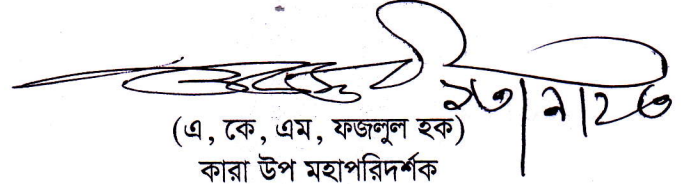 (এ, কে, এম, ফজলুল হক)
কারা উপ মহাপরিদর্শক